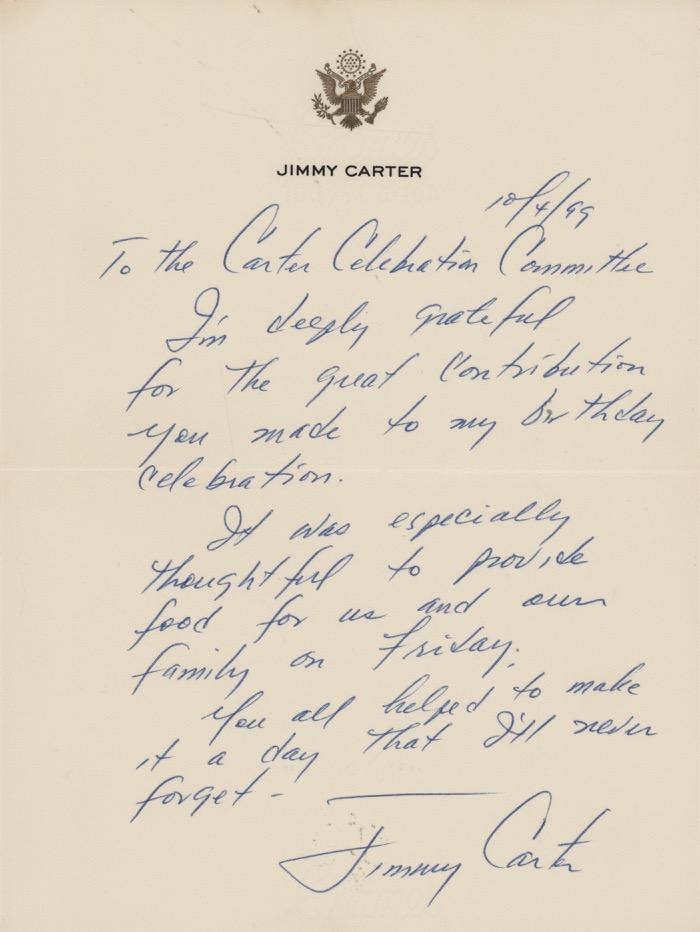 JIMMY CARTER
10/4/99
To the Carter Celebration Committee
I'm deeply grateful
for the great contribution
you made to my birthday
celebration.
It was especially
thoughtful to provide
food for us and our
family on Friday.
You all helped to make
it a day that I'll never
forget -
Jimmy Carter